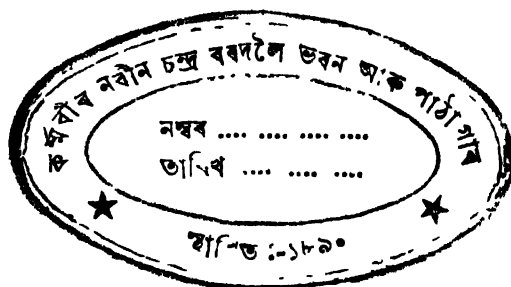 কৰ্ম্মবীৰ নবীন চন্দ্ৰ বৰদলৈ ভৱন আৰু পাঠাগাৰ
নম্বৰ .... .... .... ....
তাৰিখ .... .... ....
স্থাপিত :-১৮৯০